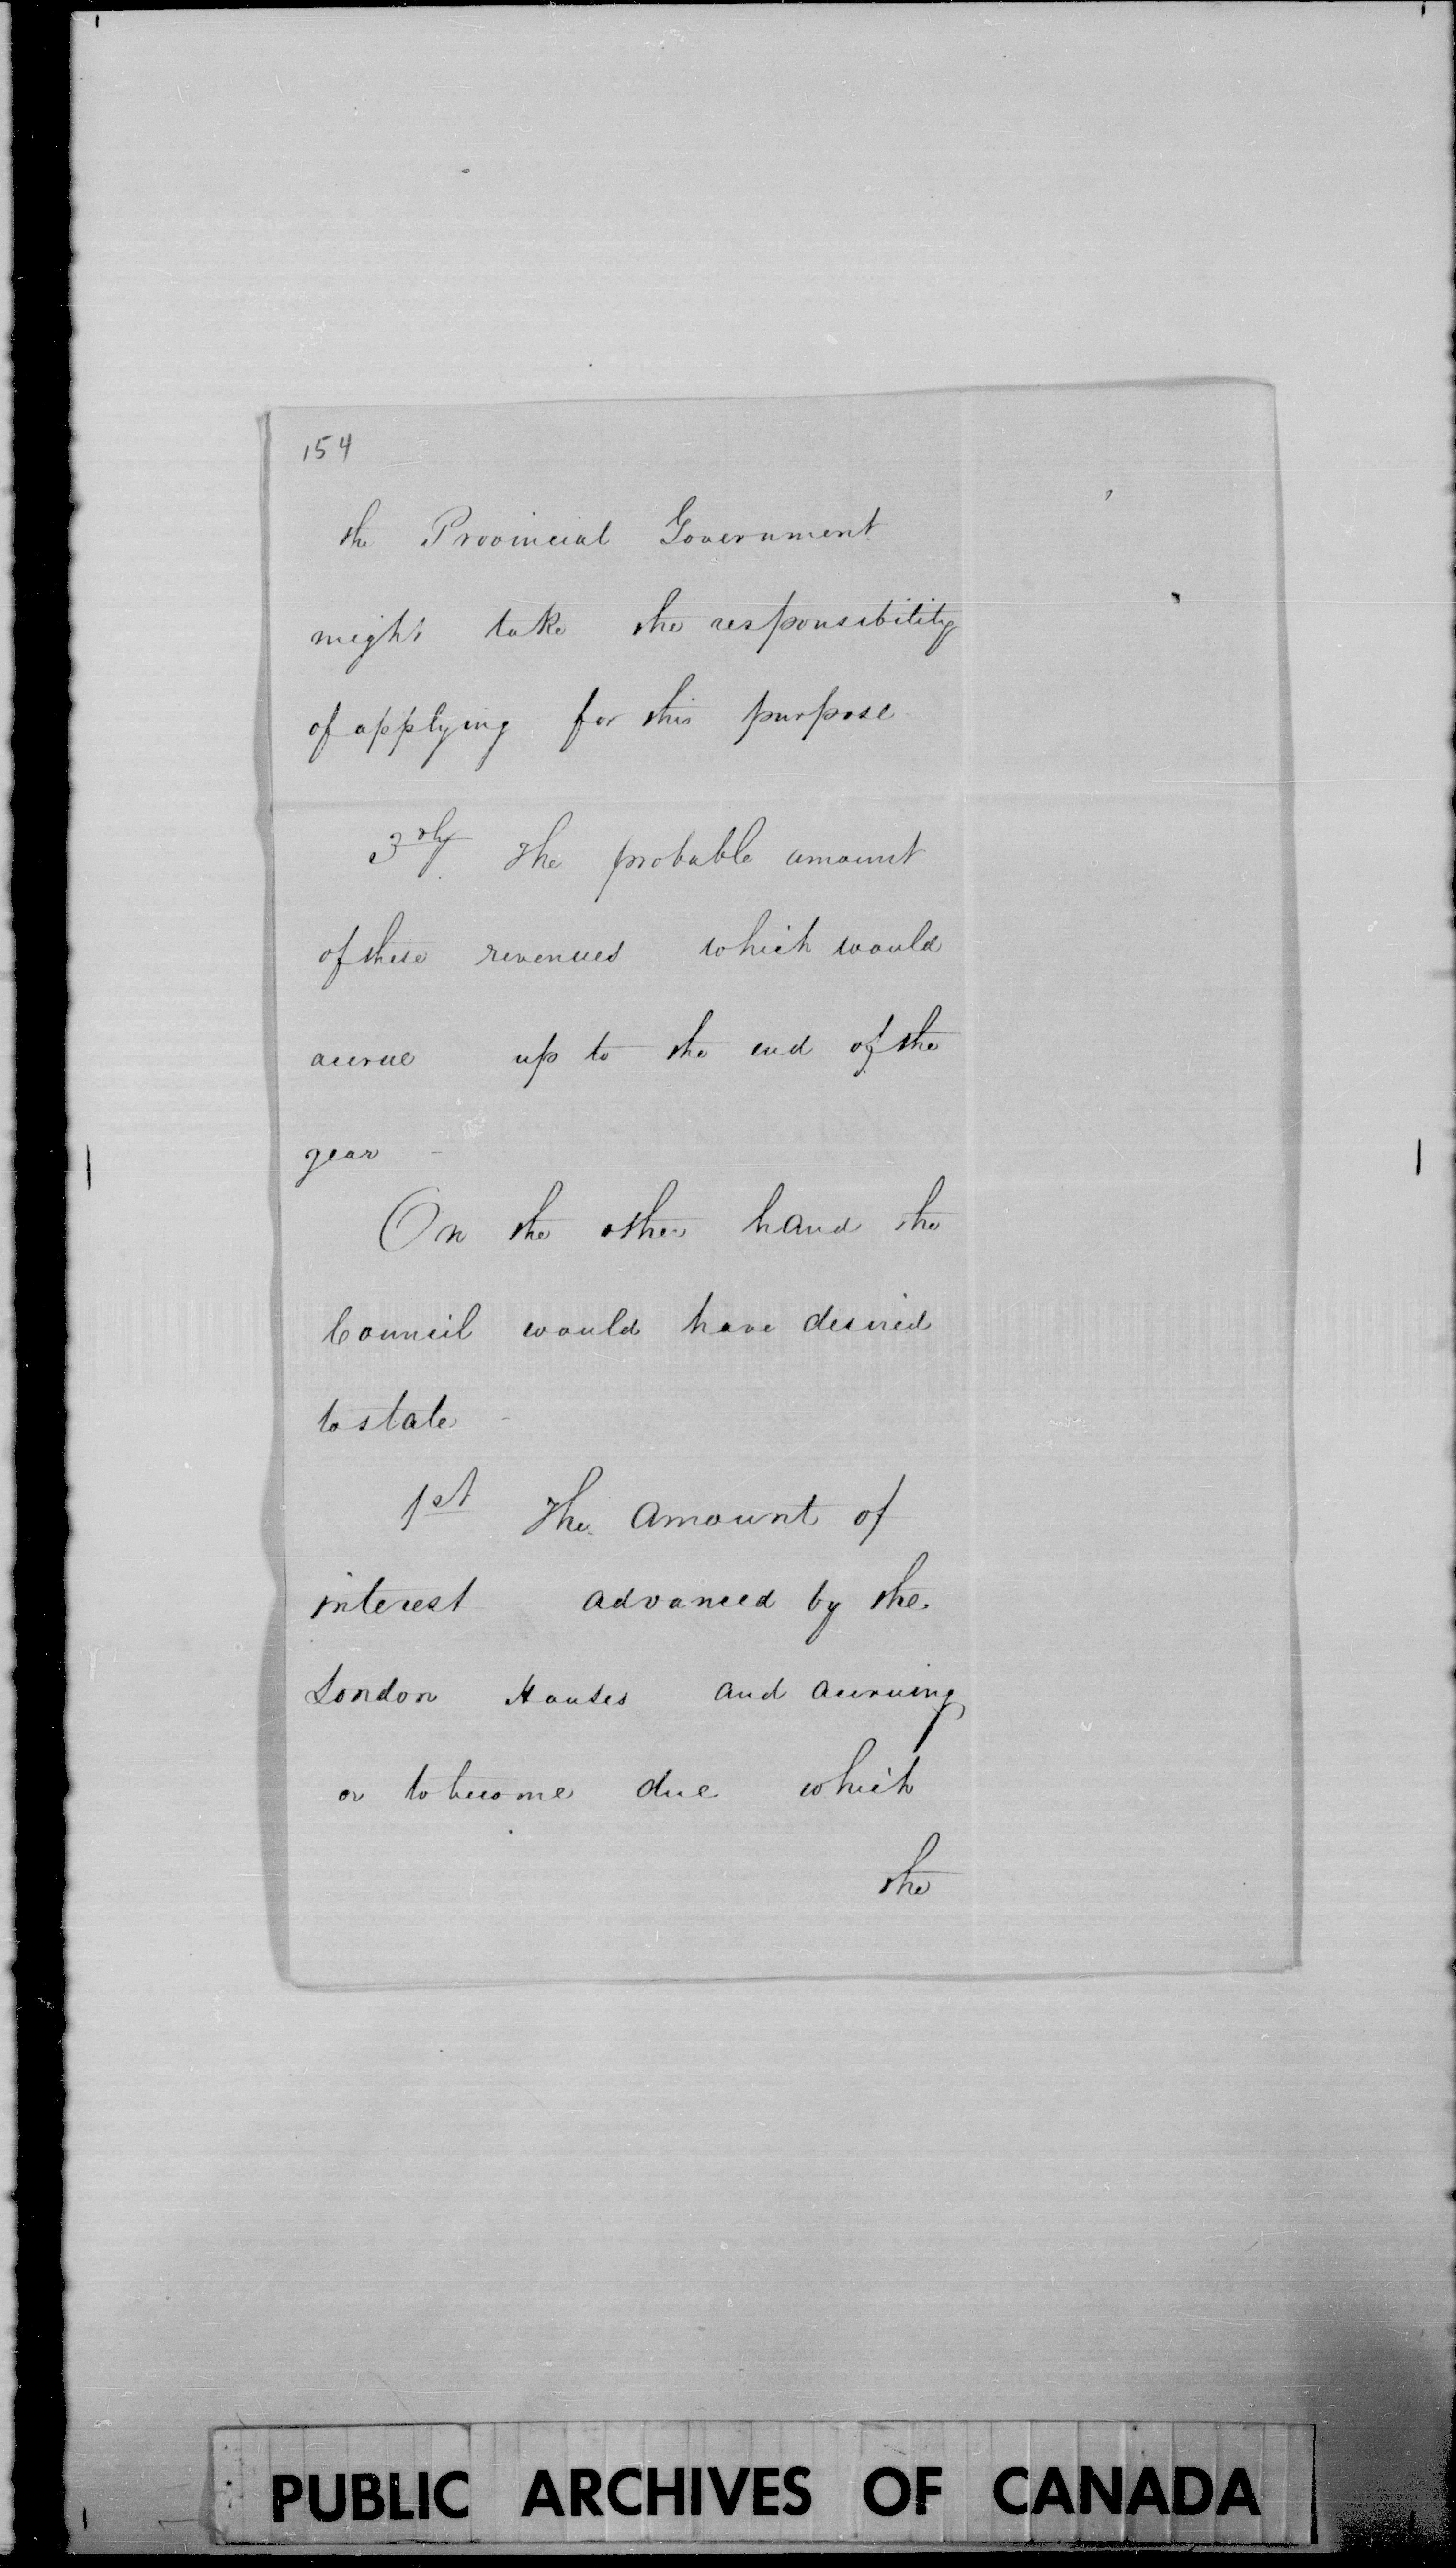 154
the Provincial Government
might take the responsibility
of applying for this purpose
3rdly The probable amount
of these revenues which would
accrue up to the end of the
year -
On the other hand the
Council would have desired
to state -
1st The amount of
interest advanced by the
London Houses and accruing
or to become due which
the
PUBLIC ARCHIVES OF CANADA